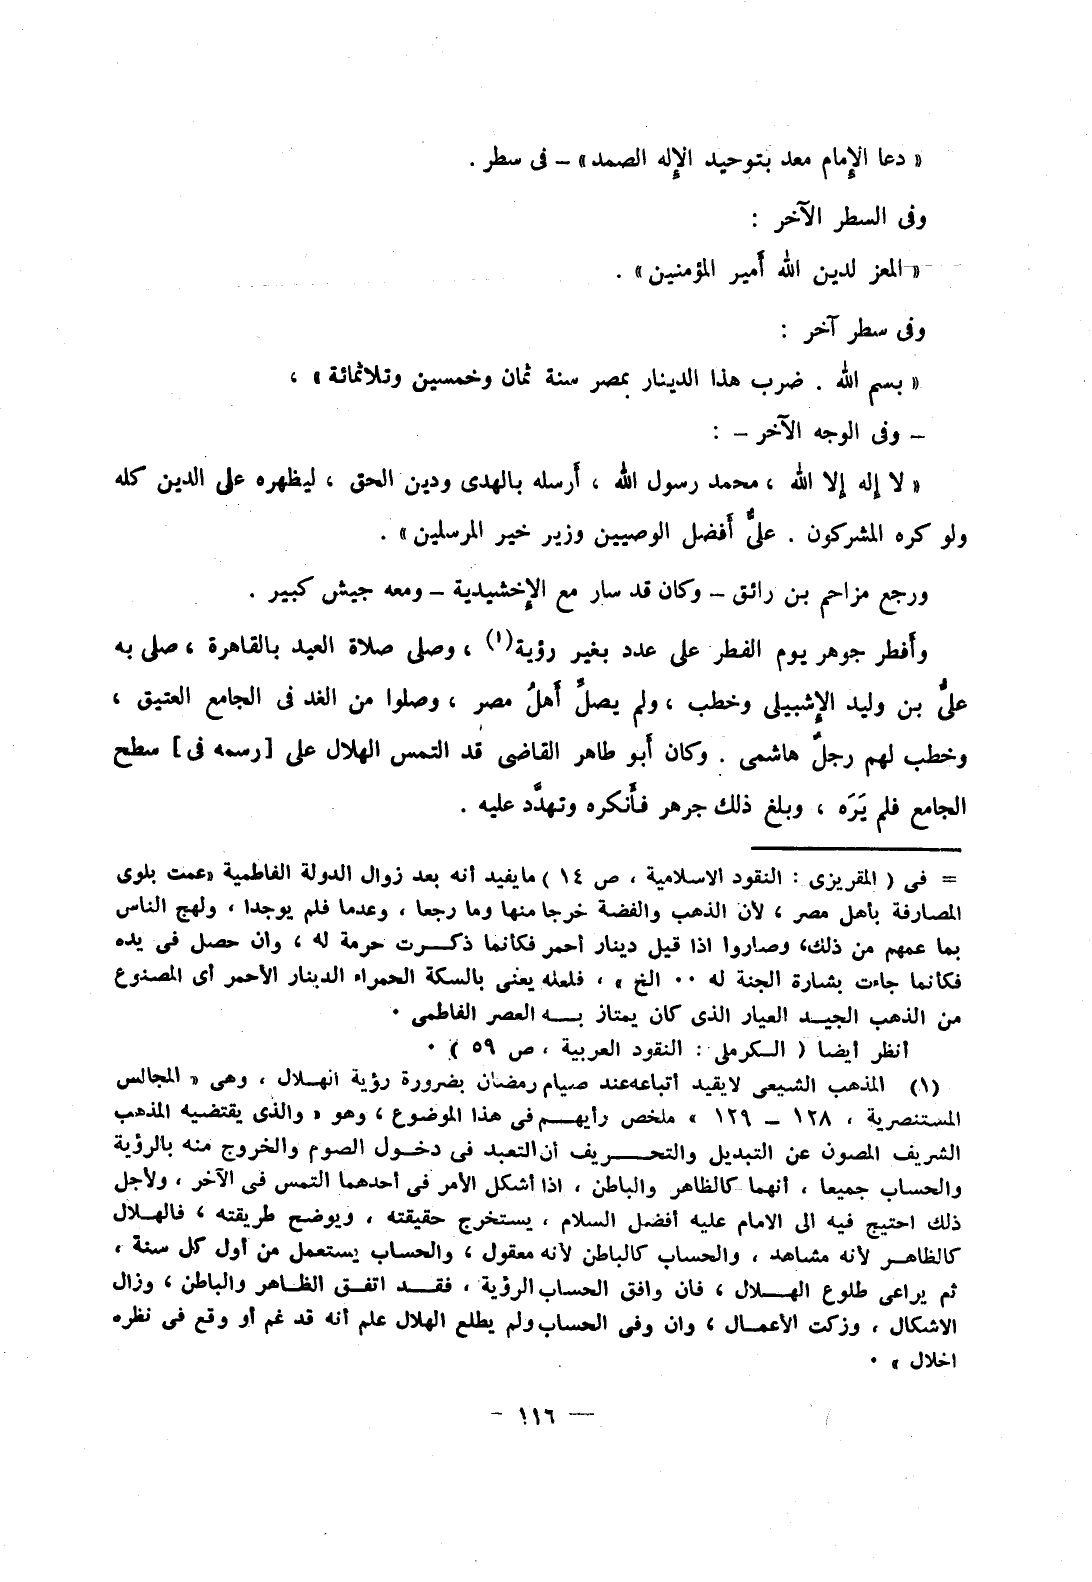 « دعا الإمام معد بتوحيد الإله الصمد» – فى سطر .
وفى السطر الآخر :
« المعز لدين الله أمير المؤمنين» .
وفى سطر آخر :
« بسم الله . ضرب هذا الدينار بمصر سنة ثمان وخمسين وثلاثمائة» ،
– وفى الوجه الآخر – :
« لا إله إلا الله ، محمد رسول الله ، أرسله بالهدى ودين الحق ، ليظهره على الدين كله
ولو كره المشركون . علىٌّ أفضل الوصيين وزير خير المرسلين» .
ورجع مزاحم بن رائق – وكان قد سار مع الإخشيدية – ومعه جيش كبير .
وأفطر جوهر يوم الفطر على عدد بغير رؤية(١) ، وصلى صلاة العيد بالقاهرة ، صلى به
علىُّ بن وليد الإشبيلى وخطب ، ولم يصلِّ أهلُ مصر ، وصلوا من الغد فى الجامع العتيق ،
وخطب لهم رجلٌ هاشمى . وكان أبو طاهر القاضى قد التمس الهلال على [رسمه فى] سطح
الجامع فلم يَرَه ، وبلغ ذلك جرهر فأنكره وتهدَّد عليه .
= فى ( المقريزى : النقود الاسلامية ، ص ١٤ ) مايفيد أنه بعد زوال الدولة الفاطمية «عمت بلوى
المصارفة بأهل مصر ، لأن الذهب والفضة خرجا منها وما رجعا ، وعدما فلم يوجدا ، ولهج الناس
بما عمهم من ذلك، وصاروا اذا قيل دينار أحمر فكأنما ذكرت حرمة له ، وان حصل فى يده
فكأنما جاءت بشارة الجنة له ٠٠ الخ » ، فلعله يعنى بالسكة الحمراء الدينار الأحمر أى المصنوع
من الذهب الجيد العيار الذى كان يمتاز به العصر الفاطمى ٠
أنظر أيضا ( الكرملى : النقود العربية ، ص ٥٩ ) ٠
(١) المذهب الشيعى لايقيد أتباعه عند صيام رمضان بضرورة رؤية الهلال ، وهى « المجالس
المستنصرية ، ١٢٨ – ١٢٩ » ملخص رأيهم فى هذا الموضوع ، وهو « والذى يقتضيه المذهب
الشريف المصون عن التبديل والتحريف أن التعبد فى دخول الصوم والخروج منه بالرؤية
والحساب جميعا ، أنهما كالظاهر والباطن ، اذا أشكل الأمر فى أحدهما التمس فى الآخر ، ولأجل
ذلك احتيج فيه الى الامام عليه أفضل السلام ، يستخرج حقيقته ، ويوضح طريقته ، فالهلال
كالظاهر لأنه مشاهد ، والحساب كالباطن لأنه معقول ، والحساب يستعمل من أول كل سنة ،
ثم يراعى طلوع الهلال ، فان وافق الحساب الرؤية ، فقد اتفق الظاهر والباطن ، وزال
الاشكال ، وزكت الأعمال ، وان وفى الحساب ولم يطلع الهلال علم أنه قد غم أو وقع فى نظره
اخلال » ٠
– ١١٦ –